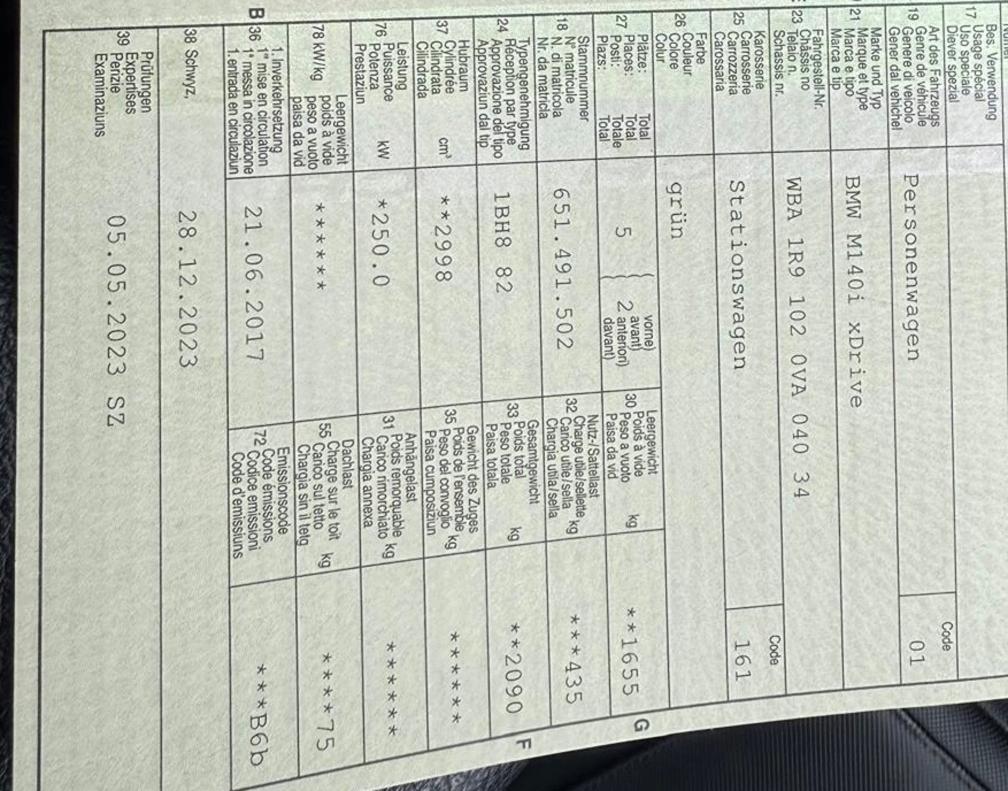 17 Bes. Verwendung
Usage spécial
Uso speciale
Diever spezial
19 Art des Fahrzeugs
Genre de véhicule
Genere di veicolo
Gener dal vehichel
Personenwagen
Code
01
21 Marke und Typ
Marque et type
Marca e tipo
Marca e tip
BMW M140i xDrive
23 Fahrgestell-Nr.
Châssis no
Telaio n.
Schassis nr.
WBA 1R9 102 0VA 040 34
25 Karosserie
Carrosserie
Carrozzeria
Carossaria
Stationswagen
Code
161
26 Farbe
Couleur
Colore
Colur
grün
27 Plätze: Total
Places: Total
Posti: Totale
Plazs: Total
5
2
vorne)
avant)
anteriori)
davant)
30 Leergewicht
Poids à vide
Peso a vuoto kg
Paisa da vid
**1655
G
18 Stammnummer
N° matricule
N. di matricola
Nr. da matricla
651.491.502
32 Nutz-/Sattellast
Charge utile/sellette kg
Carico utile/sella
Chargia utila/sella
***435
24 Typengenehmigung
Réception par type
Approvazione del tipo
Approvaziun dal tip
1BH8 82
33 Gesamtgewicht
Poids total kg
Peso totale
Paisa totala
**2090
F
37 Hubraum
Cylindrée cm³
Cilindrata
Cilindrada
**2998
35 Gewicht des Zuges
Poids de l'ensemble kg
Peso del convoglio
Paisa cumposiziun
******
76 Leistung
Puissance kW
Potenza
Prestaziun
*250.0
31 Anhängelast
Poids remorquable kg
Carico rimorchiato
Chargia annexa
******
78 kW/kg Leergewicht
poids à vide
peso a vuoto
paisa da vid
******
55 Dachlast
Charge sur le toit kg
Carico sul tetto
Chargia sin il tetg
****75
B 36 1. Inverkehrsetzung
1re mise en circulation
1a messa in circolazione
1. entrada en circulaziun
21.06.2017
72 Emissionscode
Code émissions
Codice emissioni
Code d'emissiuns
***B6b
38 Schwyz,
28.12.2023
39 Prüfungen
Expertises
Perizie
Examinaziuns
05.05.2023 SZ